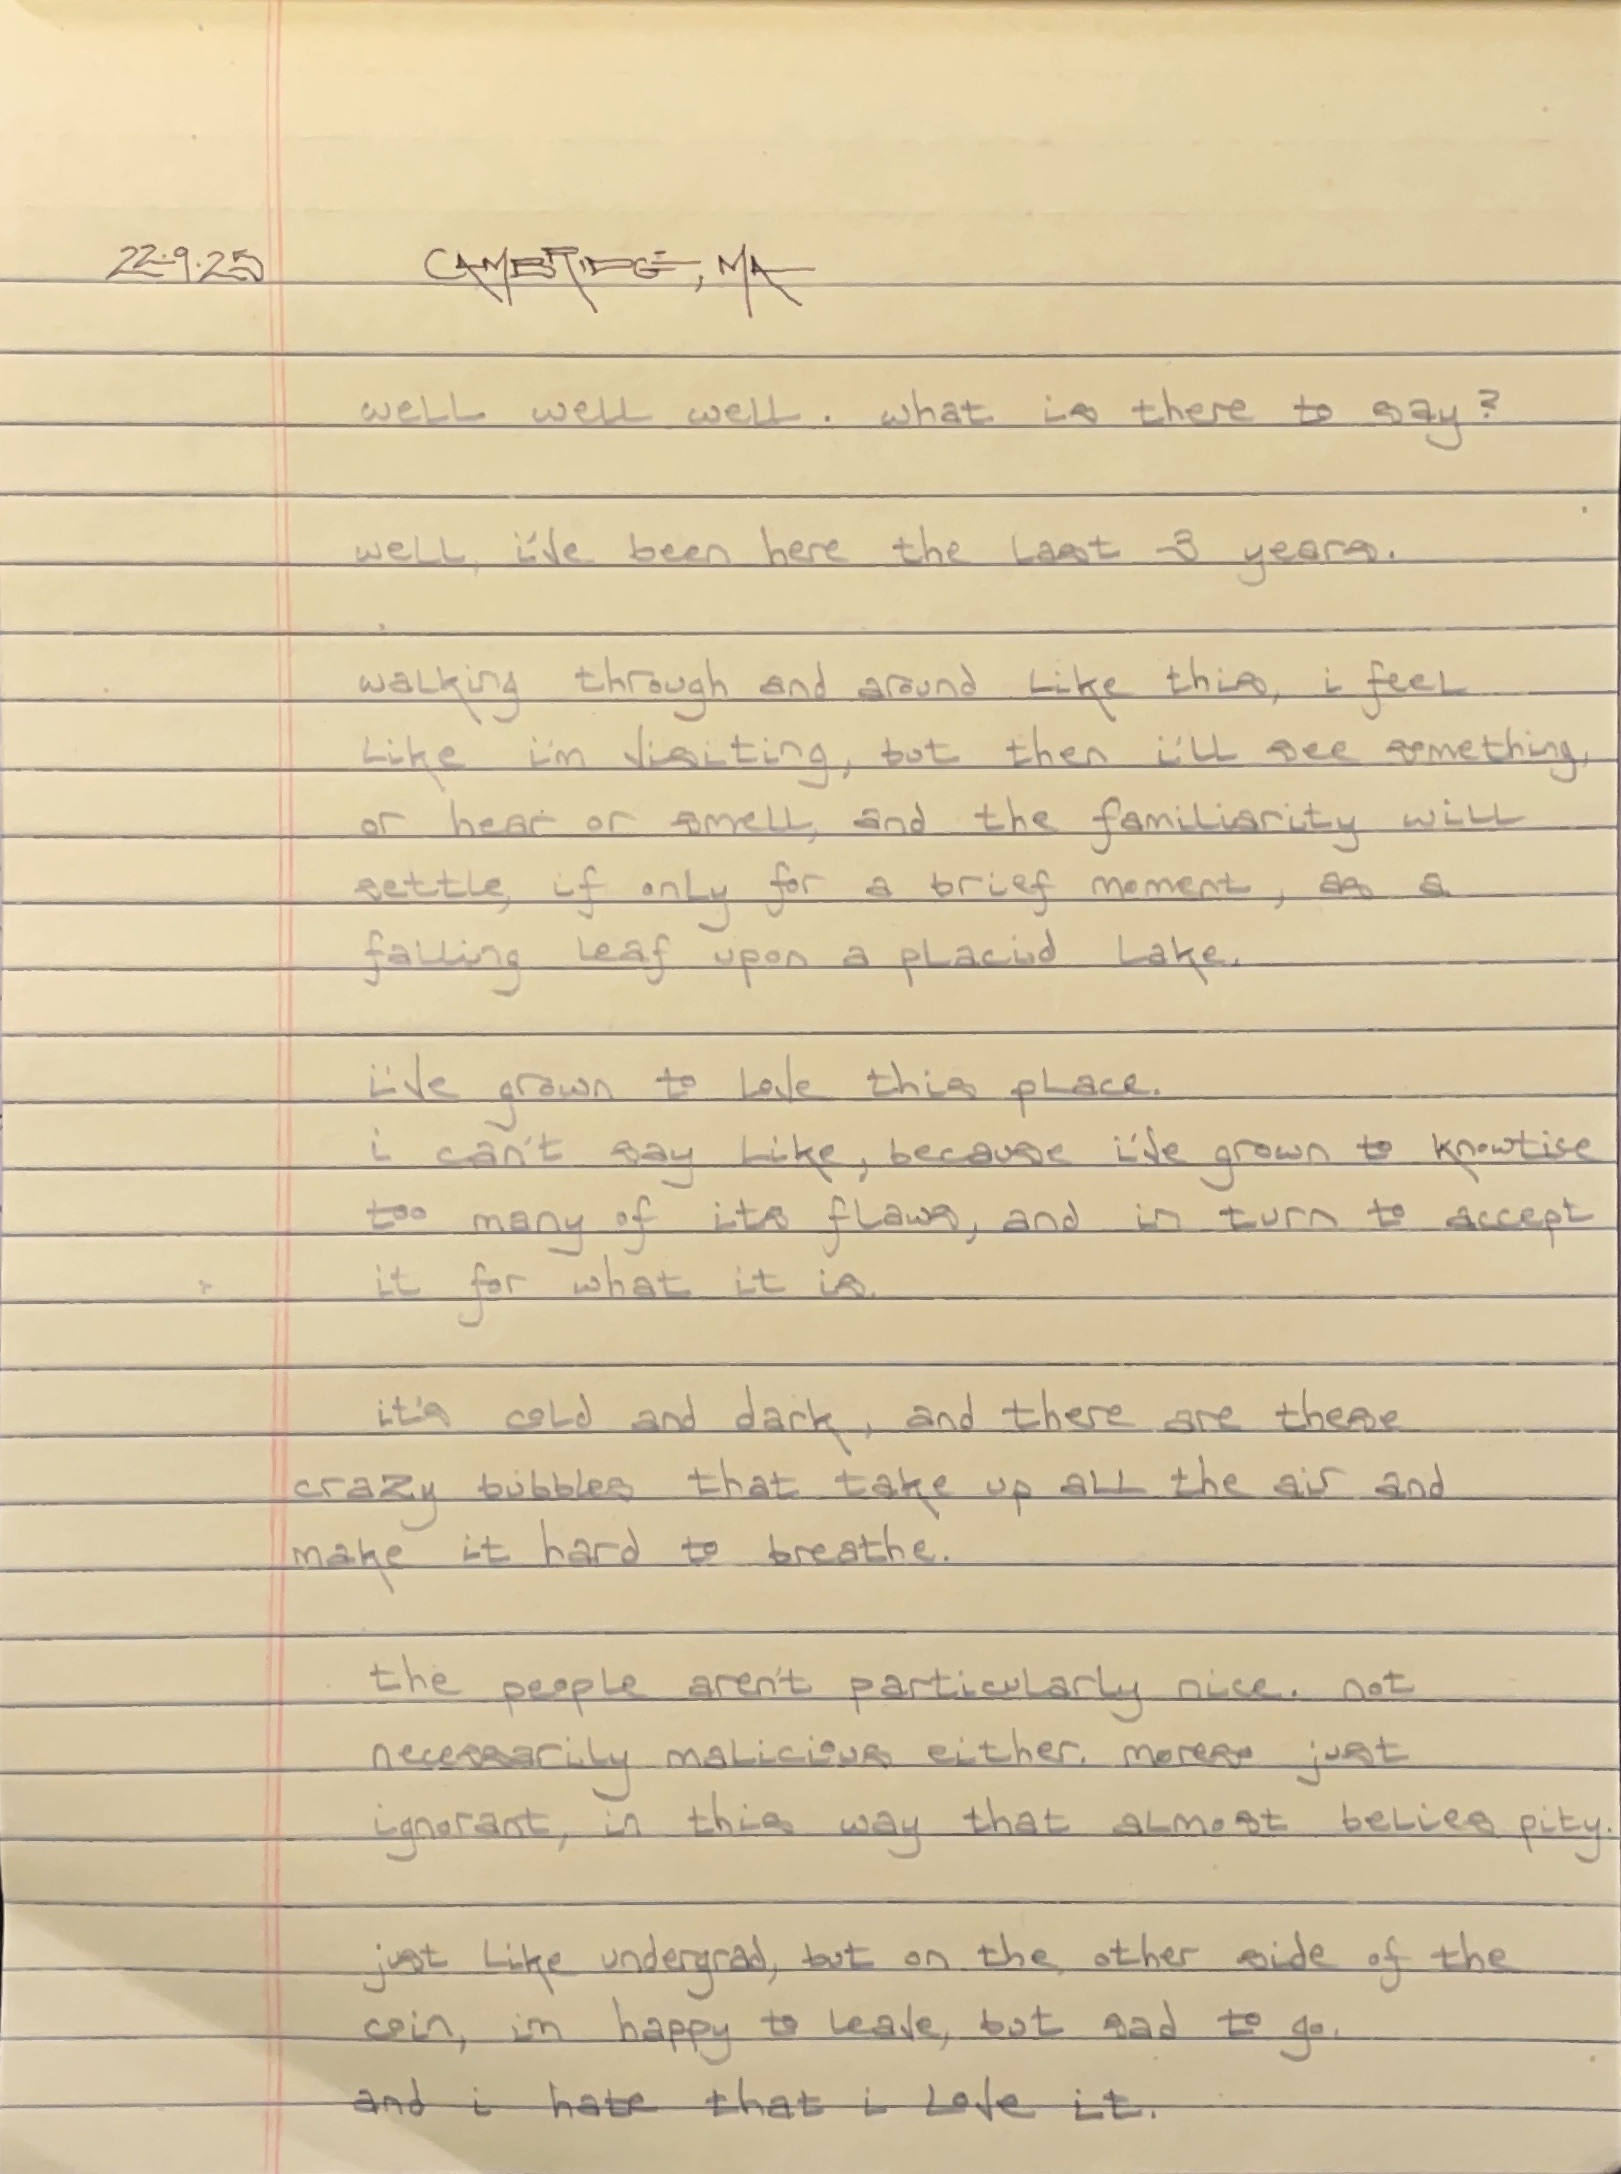 22.9.25 CAMBRIDGE, MA
well well well. what is there to say?
well, i've been here the last 3 years.
walking through and around like this, i feel
like i'm visiting, but then i'll see something,
or hear or smell, and the familiarity will
settle, if only for a brief moment, as a
falling leaf upon a placid lake.
i've grown to love this place.
i can't say like, because i've grown to knowtise
too many of its flaws, and in turn to accept
it for what it is.
it's cold and dark, and there are these
crazy bubbles that take up all the air and
make it hard to breathe.
the people aren't particularly nice. not
necessarily malicious either. moreso just
ignorant, in this way that almost belies pity.
just like undergrad, but on the other side of the
coin, im happy to leave, but sad to go.
and i hate that i love it.